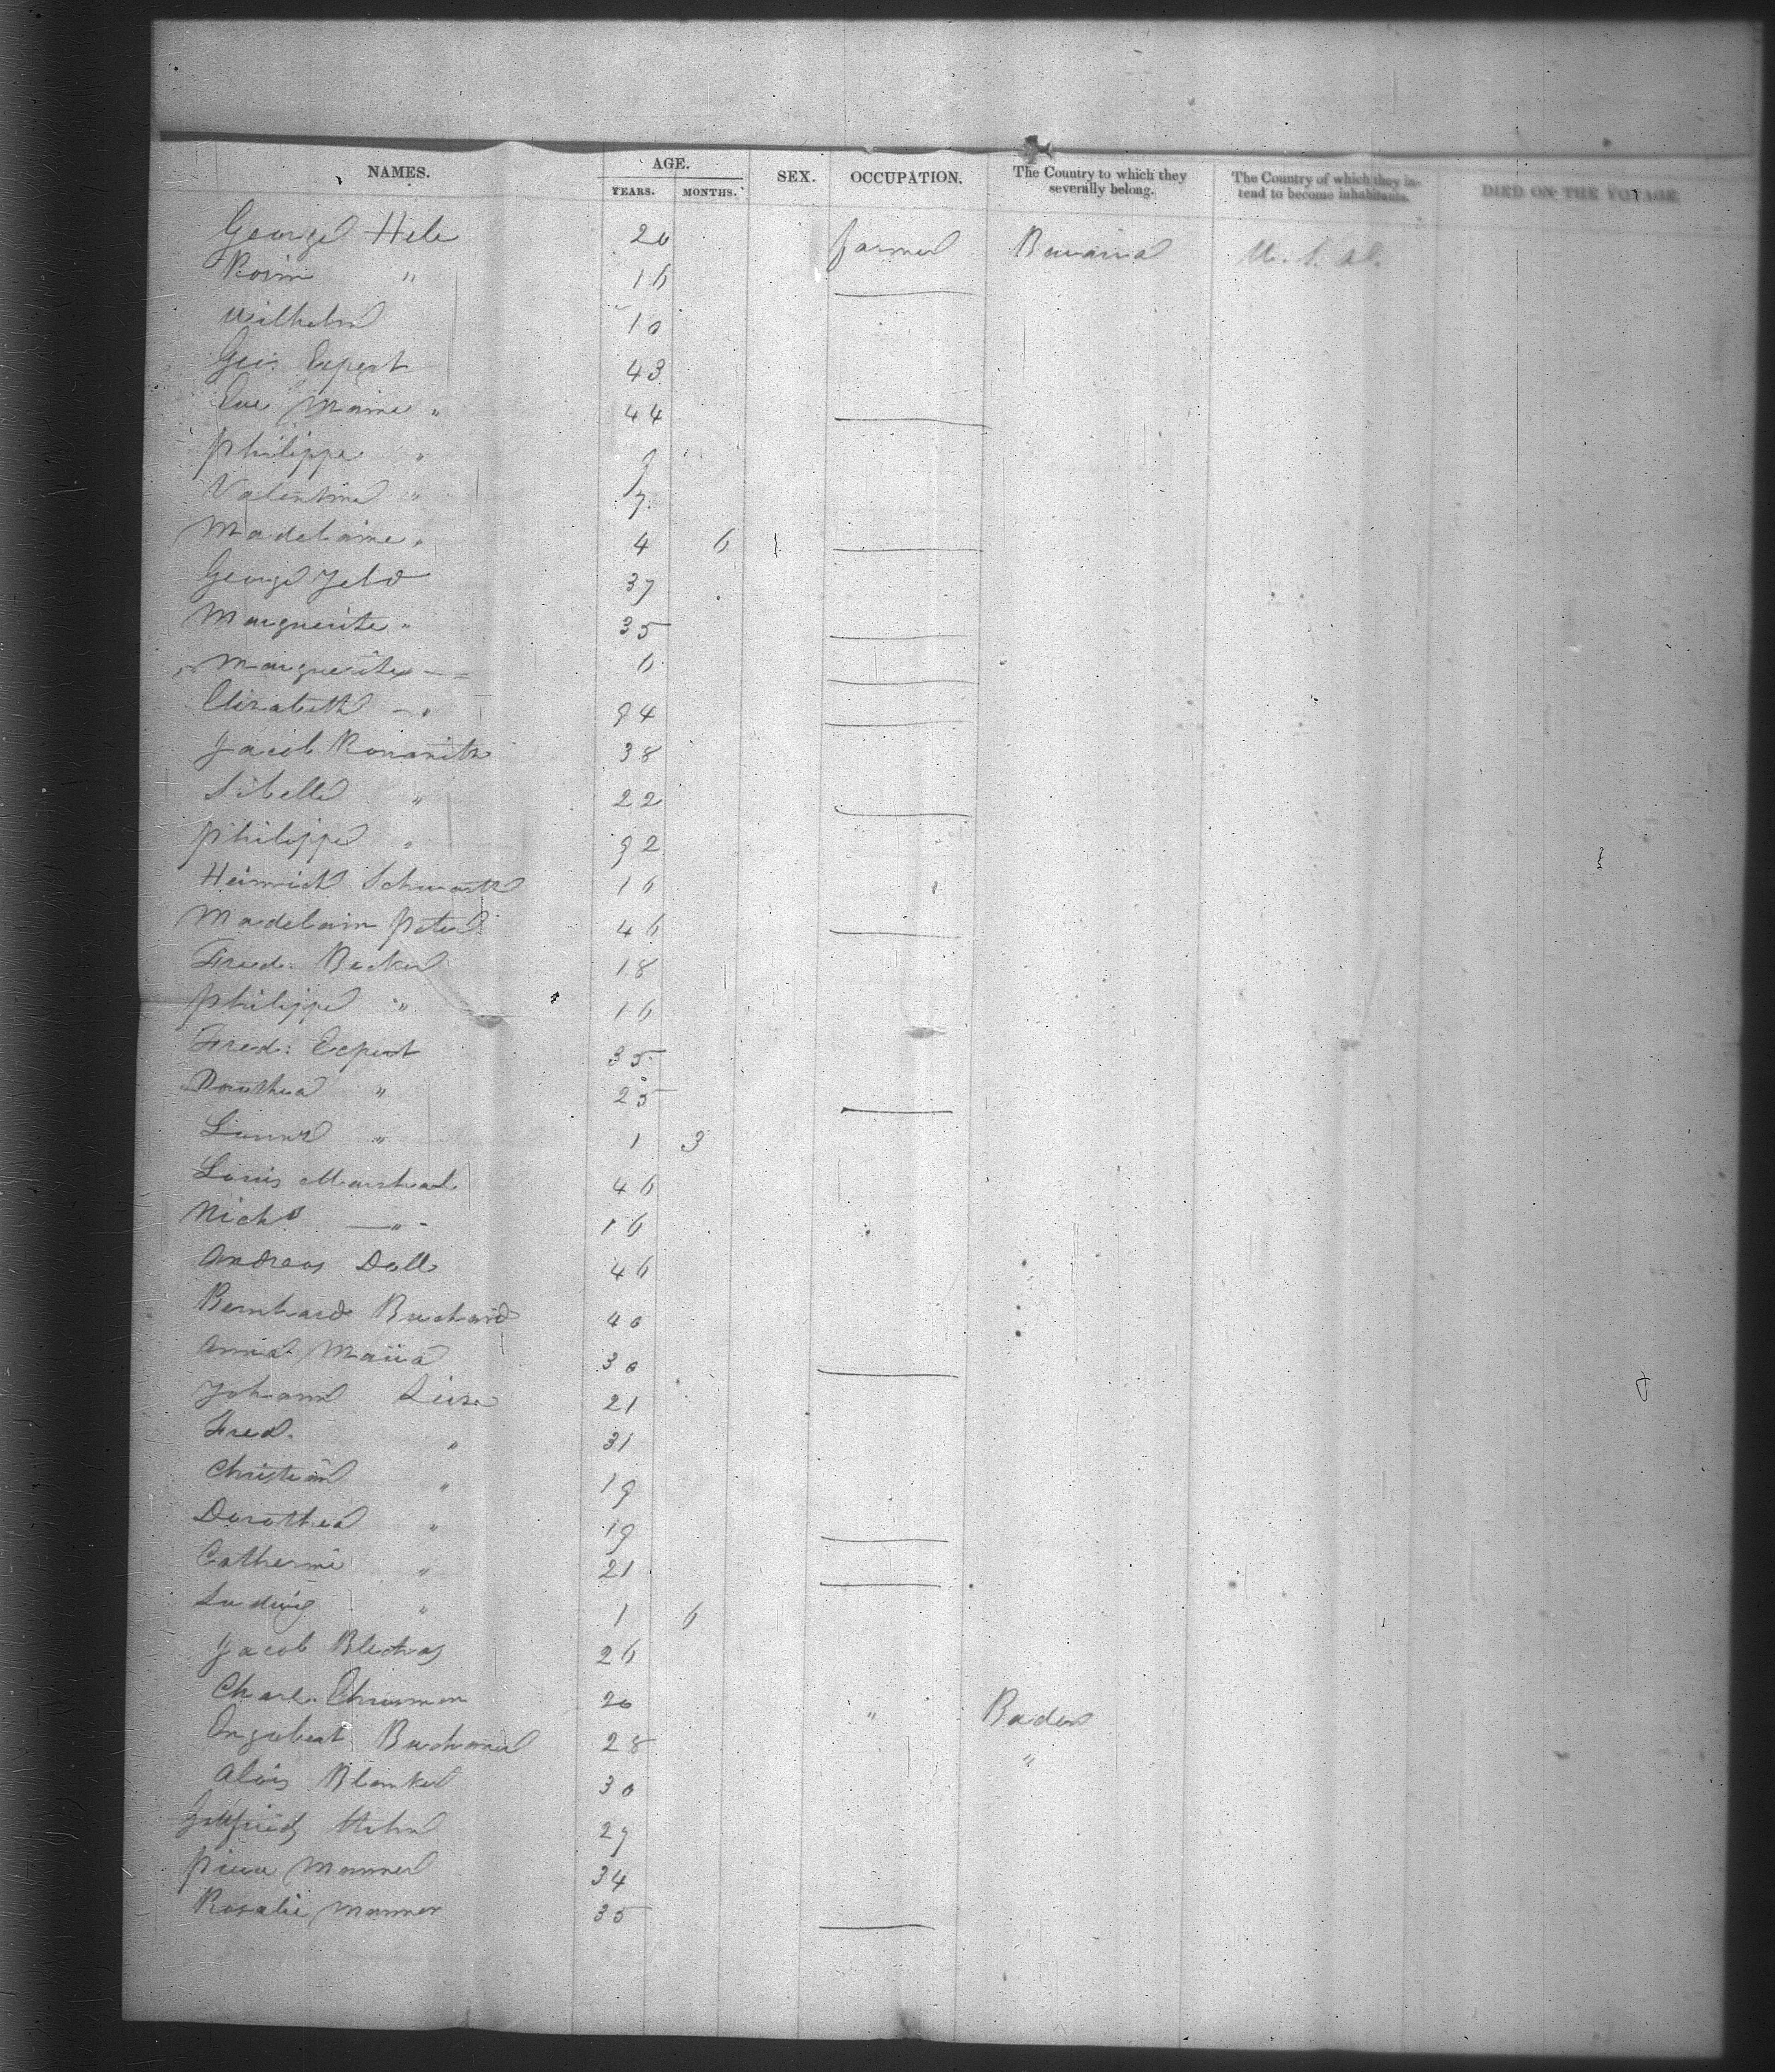 NAMES. AGE. SEX. OCCUPATION. The Country to which they severally belong. The Country of which they intend to become inhabitants. DIED ON THE VOYAGE
YEARS. MONTHS.
George Hele 20 farmer Bavaria U. S. A.
Rosin " 16
Wilhelm 10
Geo. Expert 43
Eve Marie " 44
Philippe " 9
Valentine " 7
Madelaine " 4 6
George Feld 37
Marguerite " 35
Marguerite — " 6
Elisabeth — " 94
Jacob 38
Sibelle " 22
Philippe " 92
Heinrich Schwartz 16
Madelain Peter 46
Fred. Becker 18
Philippe " 16
Fred: Expert 35
Dorothea " 25
" 1 3
Louis Marshal 46
Nichs — " - 16
Andreas Doll 46
Bernhard Buchard 40
Anna Maria 30
Johann 21
Fred. " 31
Christian " 19
Dorothea " 19
Catherine " 21
Ludwig " 1 6
Jacob 26
Charl. 20 " Baden
28 "
Alois Blanker 30
Gottfried Hahn 27
Pierre Manner 34
Rosalie Manner 35